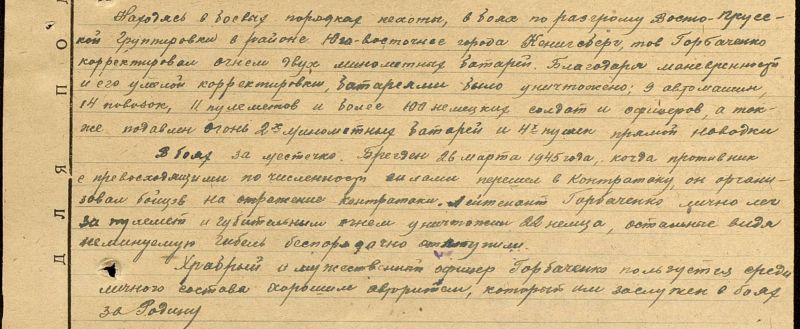 Находясь в боевых порядках пехоты, в боях по разгрому Восто-Прусс-
кой группировки в районе Юго-восточнее города Кенигсберг, тов Горбаченко
корректировал огнем двух минометных батарей. Благодаря маневренности
и его умелой корректировки, батареями было уничтожено: 9 автомашин,
14 повозок, 11 пулеметов и более 100 немецких солдат и офицеров, а так-
же подавлен огонь 2х минометных батарей и 4х пушек прямой наводки
В боях за местечко Брегден 26 марта 1945 года, когда противник
с превосходящими по численности силами перешел в контратаку, он органи-
зовал бойцов на отражение контратаки. Лейтенант Горбаченко лично лег
за пулемет и губительным огнем уничтожил 22 немца, остальные видя
неминуемую гибель беспорядочно отступили.
Храбрый и мужественный офицер Горбаченко пользуется среди
личного состава хорошим авторитетом, который им заслужен в боях
за Родину
ДЛЯ ПОД